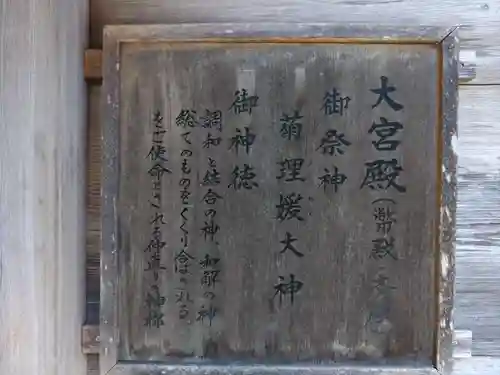 大宮殿（幣殿・本殿）
御祭神
菊理媛大神
御神徳
調和と結合の神、和解の神
総てのものをくくり合はされる
をご使命とされる仲直りの神様